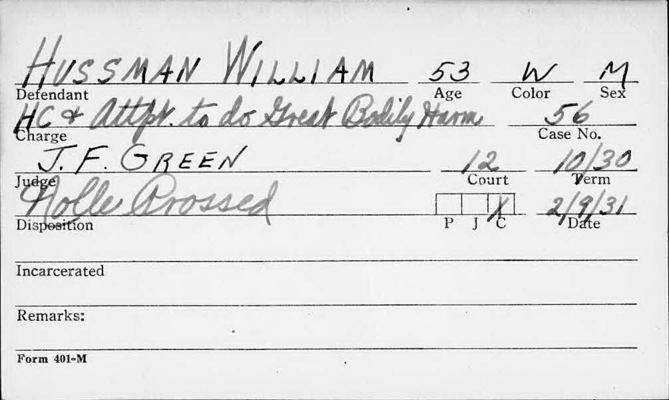 HUSSMAN WILLIAM 53 W M
Defendant Age Color Sex
HC & Attpt. to do Great Bodily Harm 56
Charge Case No.
J. F. GREEN 12 10/30
Judge Court Term
Nolle Prossed X 2/9/31
Disposition P J C Date
Incarcerated
Remarks:
Form 401-M